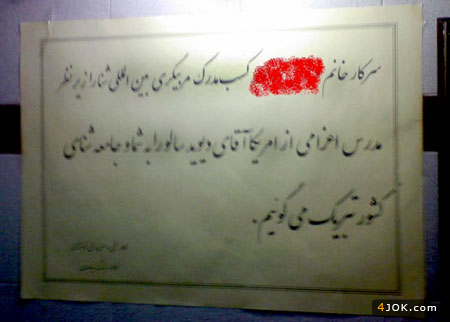 سرکار خانم کسب مدرک مربیگری بین المللی شنا را زیر نظر
مدرس اعزامی از امریکا آقای دیوید سالو را به شما و جامعه شنای
کشور تبریک می گوئیم.
4JOK.com